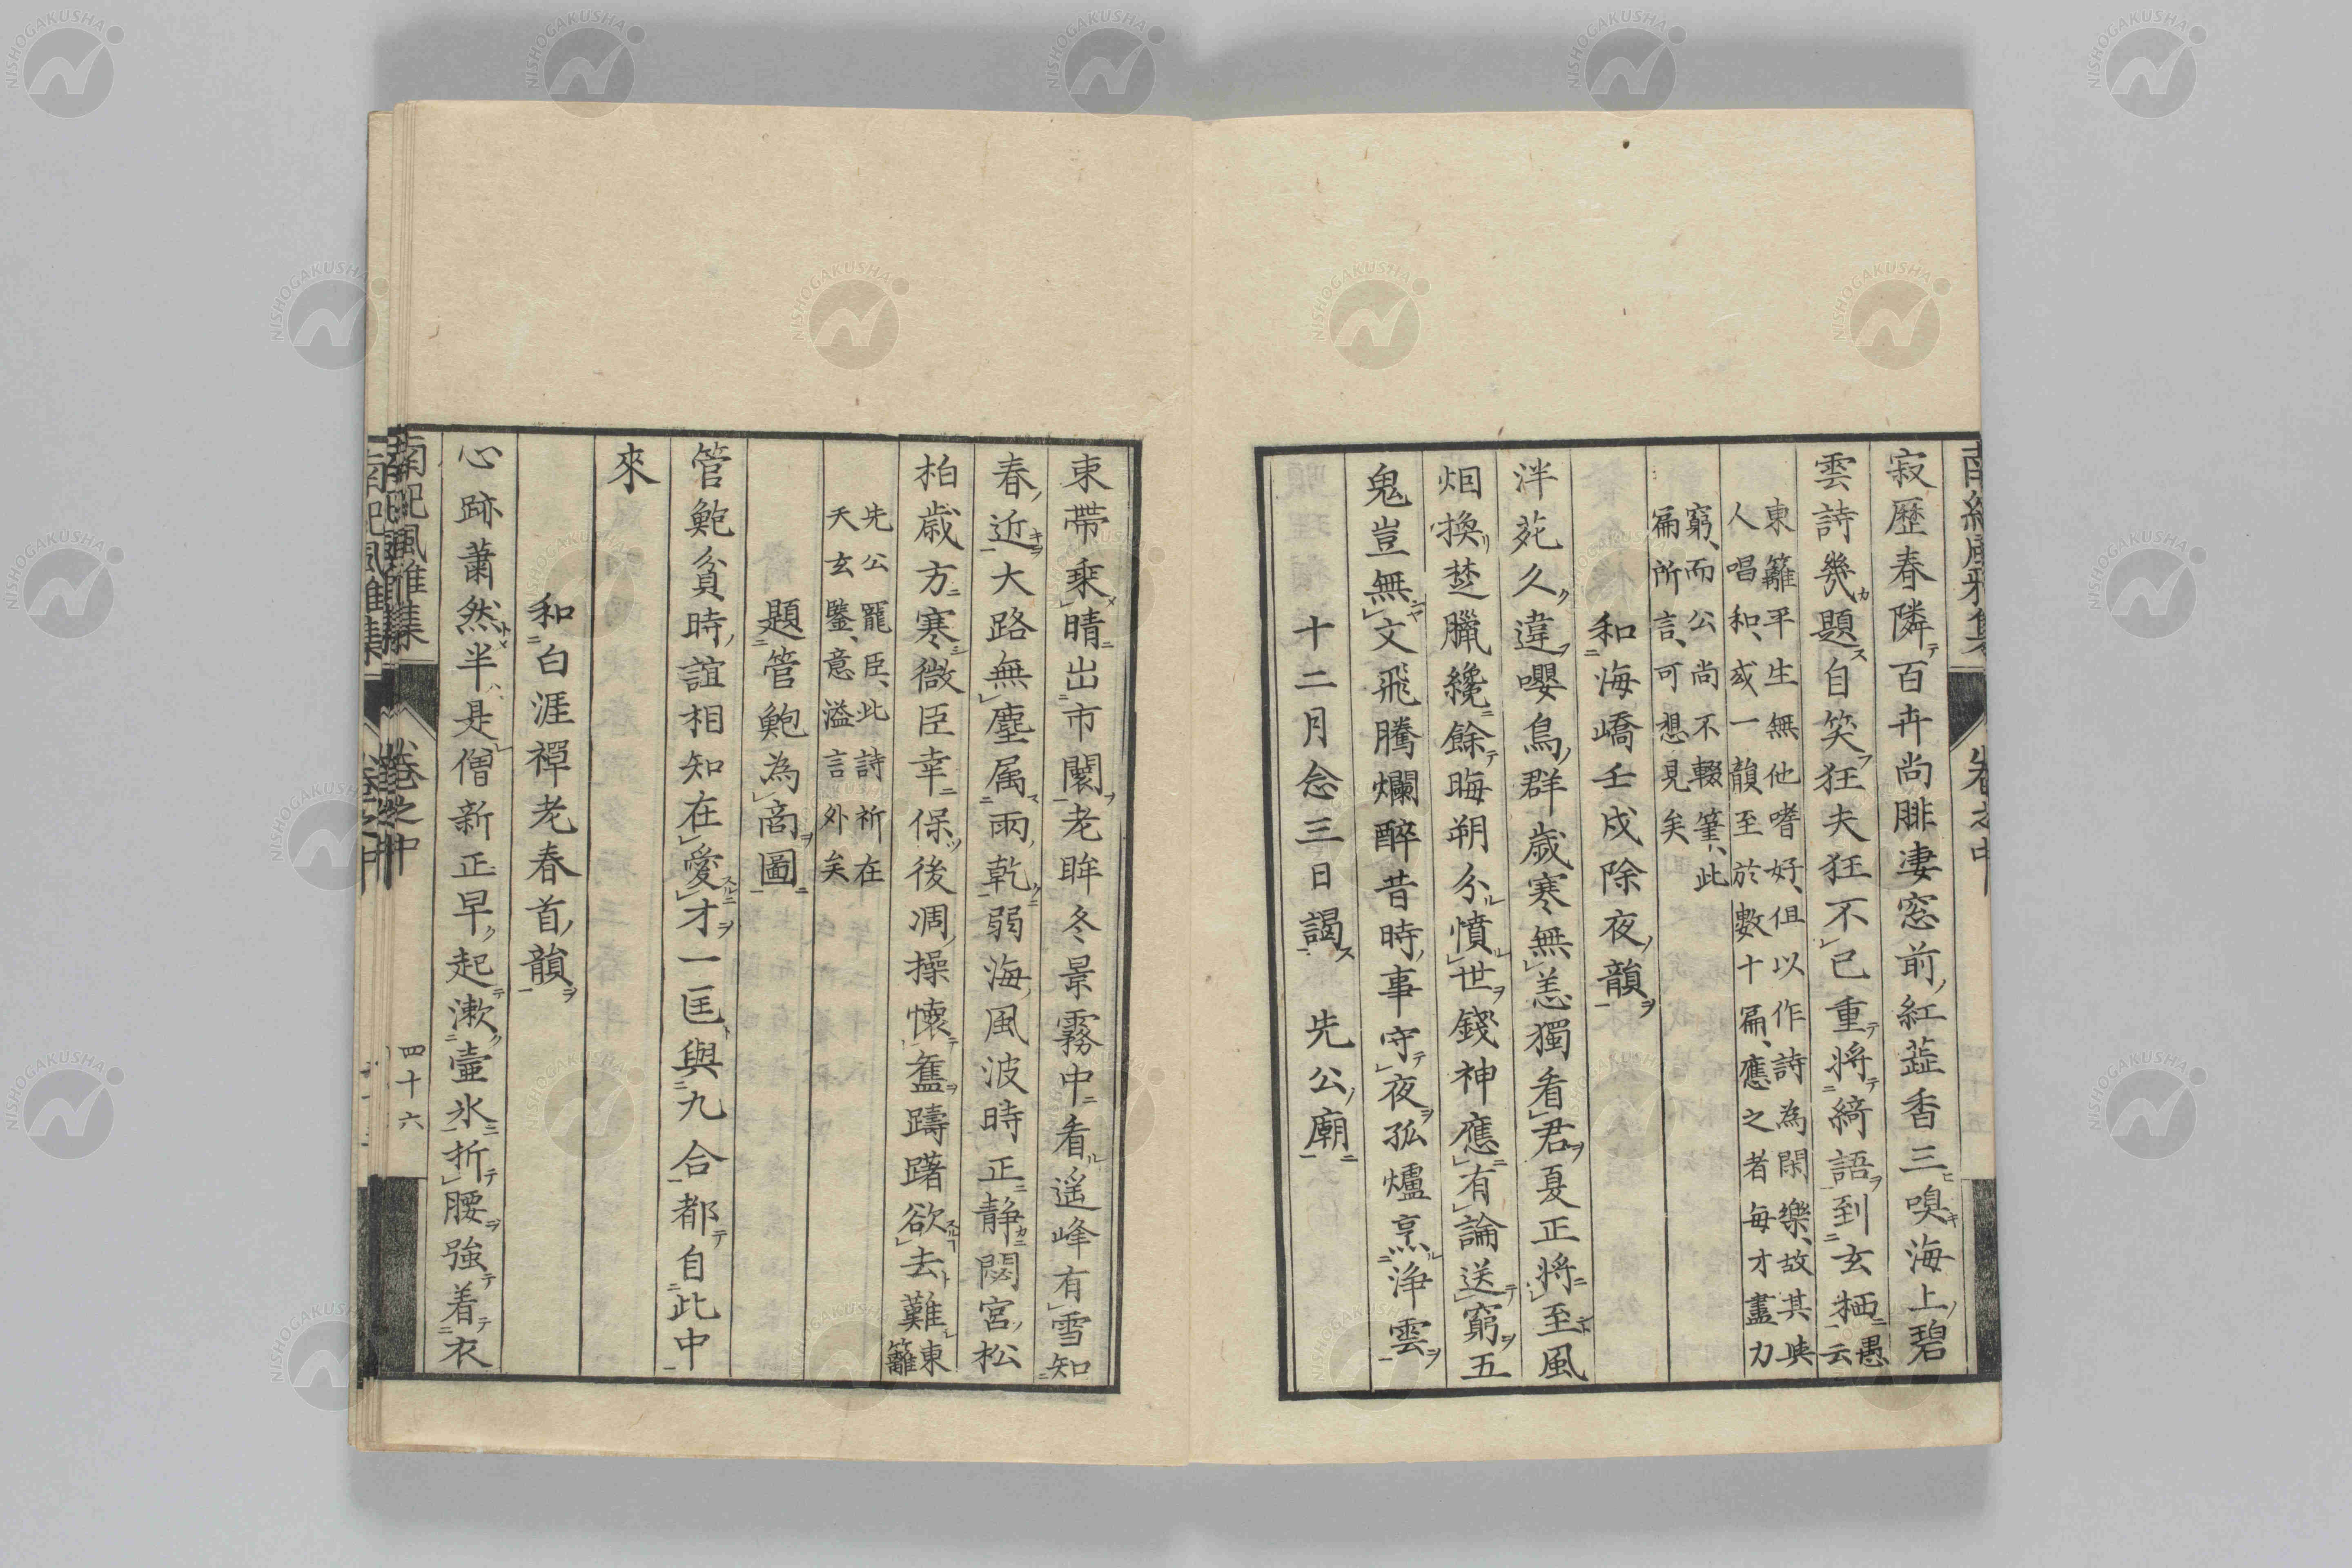 寂歷春隣百卉尚腓凄窓前紅蕋香三嗅海上碧
雲詩幾題自笑狂夫狂不已重將綺語到玄栖愚云
東籬平生無他嗜好但以作詩為閑樂故其與
人唱和或一韻至於數十扁應之者每才盡力
窮而公尚不輟筆此
扁所言可想見矣
和海嶠壬戌除夜韻
泮苑久違嚶鳥群歲寒無恙獨看君夏正將至風
烟換楚臘纔餘晦朔分憤世錢神應有論送窮五
鬼豈無文飛騰爛醉昔時事守夜孤爐烹浄雲
十二月念三日謁 先公廟
束帶乗晴出市闤老眸冬景霧中看遥峰有雪知
春近大路無塵属雨乾弱海風波時正静閟宮松
柏歳方寒微臣幸保後凋操懷舊躊躇欲去難東籬
先公寵臣此詩祈在
天玄鑒意溢言外矣
題管鮑為商圖
管鮑貧時誼相知在愛才一匡與九合都自此中
來
和白涯禪老春首韻
心跡蕭然半是僧新正早起漱壷氷折腰強着衣
南紀風雅集
卷之中
四十六
NISHOGAKUSHA